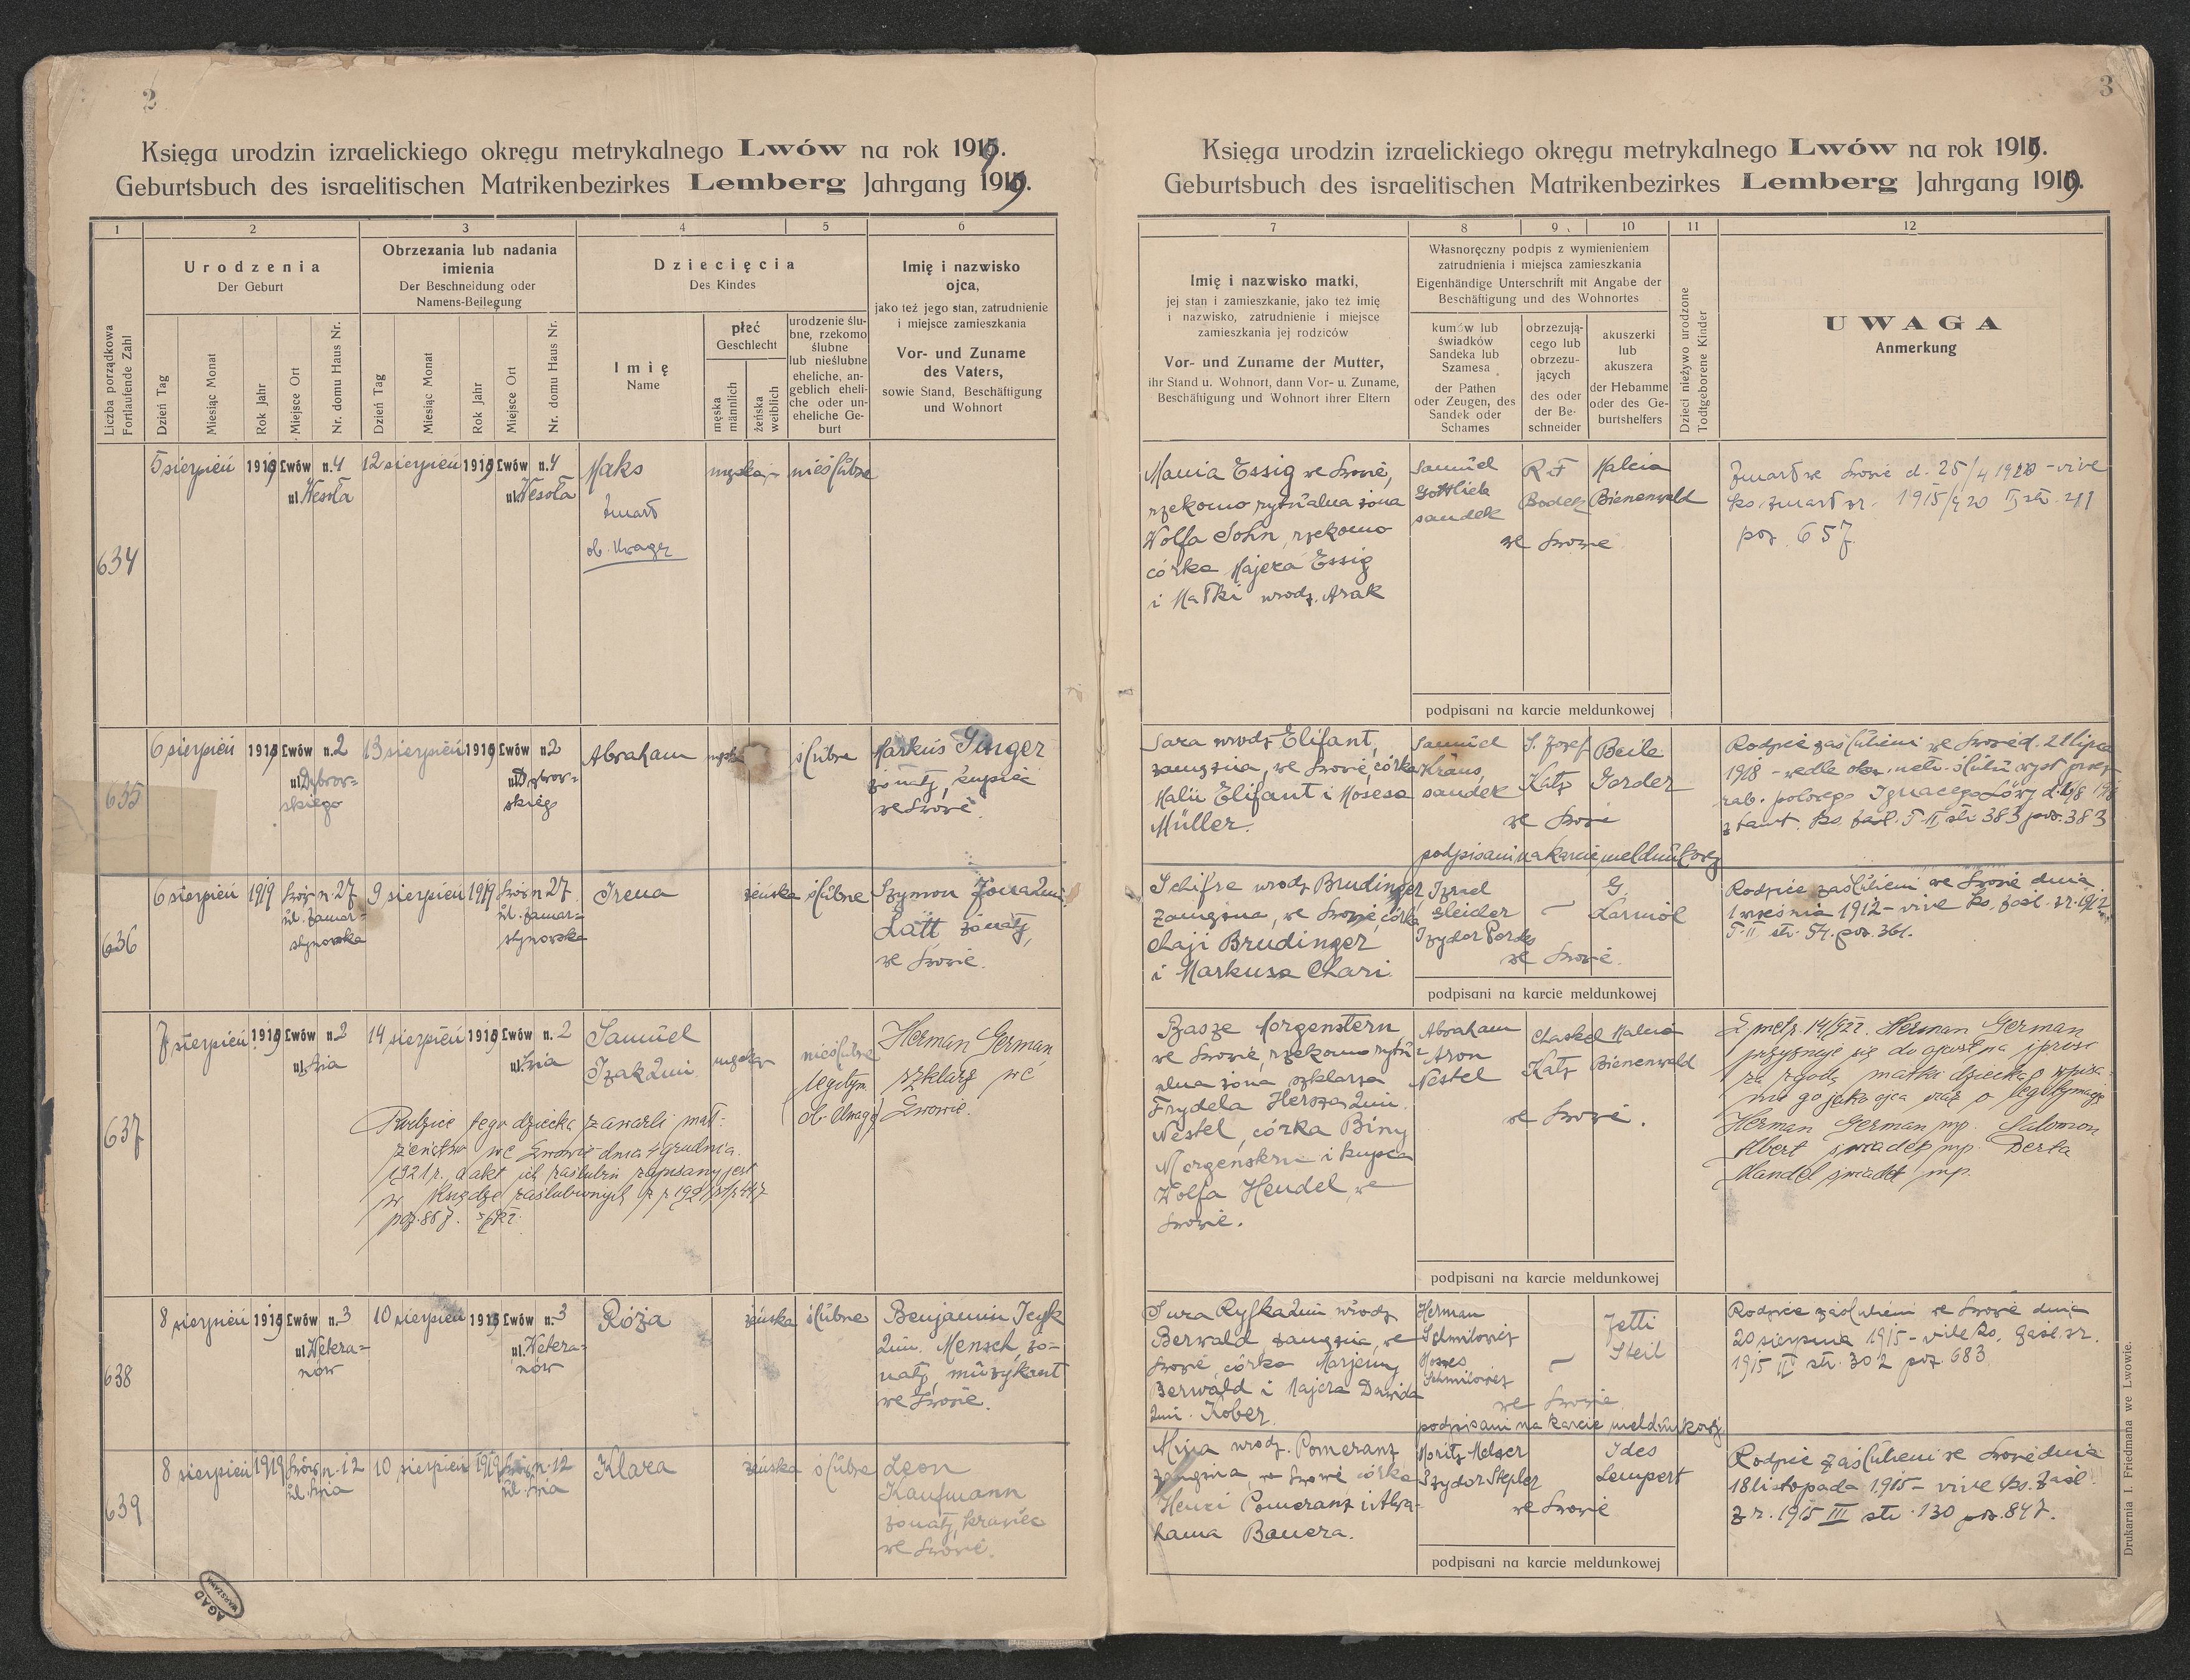 2
Księga urodzin izraelickiego okręgu metrykalnego Lwów na rok 1919.
Geburtsbuch des israelitischen Matrikenbezirkes Lemberg Jahrgang 1919.
1 2 3 4 5 6
Liczba porządkowa
Fortlaufende Zahl
Urodzenia
Der Geburt
Dzień Tag
Miesiąc Monat
Rok Jahr
Miejsce Ort
Nr. domu Haus Nr.
Obrzezania lub nadania
imienia
Der Beschneidung oder
Namens-Beilegung
Dzień Tag
Miesiąc Monat
Rok Jahr
Miejsce Ort
Nr. domu Haus Nr.
Dziecięcia
Des Kindes
Imię
Name
płeć
Geschlecht
męska
männlich
żeńska
weiblich
urodzenie ślu-
bne, rzekomo
ślubne
lub nieślubne
eheliche, an-
geblich eheli-
che oder un-
eheliche Ge-
burt
Imię i nazwisko
ojca,
jako też jego stan, zatrudnienie
i miejsce zamieszkania
Vor- und Zuname
des Vaters,
sowie Stand, Beschäftigung
und Wohnort
634
5 sierpień 1919 Lwów n. 4
ul. Wesoła
12 sierpień 1919 Lwów n. 4
ul. Wesoła
Maks
Zmarł
ob. Uwagę
męska
nieślubne
635
6 sierpień 1919 Lwów n. 2
ul. Dąbrow-
skiego
13 sierpień 1919 Lwów n. 2
ul. Dąbrow-
skiego
Abraham
męska
ślubne
Markus Singer
żonaty, kupiec
we Lwowie.
636
6 sierpień 1919 Lwów n. 27
ul. Zamar-
stynowska
9 sierpień 1919 Lwów n. 27
ul. Zamar-
stynowska
Irena
żeńska
ślubne
Szymon
Latt żonaty,
we Lwowie.
637
7 sierpień 1919 Lwów n. 2
ul.
14 sierpień 1919 Lwów n. 2
ul.
Samuel
Izak 2im.
męska
nieślubne
legitym.
ob. Uwagę
Herman German
szklarz we
Lwowie.
Rodzice tego dziecka zawarli mał-
żeństwo we Lwowie dnia 4 grudnia
1921 r. a akt ich zaślubin zapisany jest
w księdze zaślubionych
poz. 867.
638
8 sierpień 1919 Lwów n. 3
ul. Wetera-
nów
10 sierpień 1919 Lwów n. 3
ul. Wetera-
nów
Róża
żeńska
ślubne
Benjamin Icyk
2im. Mensch, żo-
naty, muzykant
we Lwowie.
639
8 sierpień 1919 Lwów n. 12
ul.
10 sierpień 1919 Lwów n. 12
ul.
Klara
żeńska
ślubne
Leon
Kaufmann
żonaty, krawiec
we Lwowie.
AGAD
WARSZAWA
3
Księga urodzin izraelickiego okręgu metrykalnego Lwów na rok 1919.
Geburtsbuch des israelitischen Matrikenbezirkes Lemberg Jahrgang 1919.
7 8 9 10 11 12
Imię i nazwisko matki,
jej stan i zamieszkanie, jako też imię
i nazwisko, zatrudnienie i miejsce
zamieszkania jej rodziców
Vor- und Zuname der Mutter,
ihr Stand u. Wohnort, dann Vor- u. Zuname,
Beschäftigung und Wohnort ihrer Eltern
Własnoręczny podpis z wymienieniem
zatrudnienia i miejsca zamieszkania
Eigenhändige Unterschrift mit Angabe der
Beschäftigung und des Wohnortes
kumów lub
świadków
Sandeka lub
Szamesa
der Pathen
oder Zeugen, des
Sandek oder
Schames
obrzezują-
cego lub
obrzezu-
jących
des oder
der Be-
schneider
akuszerki
lub
akuszera
der Hebamme
oder des Ge-
burtshelfers
Dzieci nieżywo urodzone
Todtgeborene Kinder
UWAGA
Anmerkung
Mania Essig we Lwowie,
rzekomo rytualna żona
Wolfa Sohn, rzekomo
córka Majera Essig
i Matki urodz. Arak
Samuel
Gottlieb
sandek
Bodek
Malcia
Bienenwald
we Lwowie
podpisani na karcie meldunkowej
Zmarł we Lwowie d. 25/4 1920 - vide
ks. zmarł. str. 211
poz. 657.
Sara urodz. Elifant,
zamężna, we Lwowie, córka
Malii Elifant i Mosesa
Müller.
Samuel
Kraus,
sandek
S. Józef
Katz
Beile
Forder
we Lwowie
podpisani na karcie meldunkowej
Rodzice zaślubieni we Lwowie d. 21 lipca
1918 - wedle metr. ślubu wyst. przez
rab. polowego Ignacego
str. 383 poz. 383
Schifre urodz. Brudinger,
zamężna, we Lwowie, córka
Chaji Brudinger
i Markusa Chari.
Izrael
Gleider
Izydor Pordes
G.
Karmiol
we Lwowie.
podpisani na karcie meldunkowej
Rodzice zaślubieni we Lwowie dnia
1 września 1912 - vide ks. zaśl. z r. 1912
T. II str. 54. poz. 361.
Morgenstern
we Lwowie, rzekomo rytu-
alna żona szklarza
Frydela Hersza 2im.
Nestel, córka Biny
Morgenstern i kupca
Wolfa Hendel, we
Lwowie.
Abraham
Aron
Nestel
Chaskel
Katz
Malcia
Bienenwald
we Lwowie.
podpisani na karcie meldunkowej
Herman German
przyznaje się do ojcostwa i prosi
za zgodą matki dziecka o wpisa-
nie go jako ojca oraz o legitymację
Herman German mp. Salomon
Albert świadek mp. Berta
Mandel świadek mp.
Sura Ryfka 2im urodz.
Berwald zamężna, we
Lwowie córka Marjemy
Berwald i Majera Dawida
2im. Kober.
Herman
Schmilowicz
Moses
Schmilowicz
Jetti
Steil
we Lwowie
podpisani na karcie meldunkowej
Rodzice zaślubieni we Lwowie dnia
20 sierpnia 1915 - vide ks. zaśl. z r.
1915 str. 302 poz. 683
urodz. Pomeranz
zamężna, we Lwowie, córka
Henci Pomeranz i Abra-
hama Bauera.
Moritz Melzer
Izydor Stepler
Ides
Lempert
we Lwowie
podpisani na karcie meldunkowej
Rodzice zaślubieni we Lwowie dnia
18 listopada 1915 - vide ks. zaśl.
z r. 1915 III str. 130 poz. 847.
Drukarnia I. Friedmana we Lwowie.